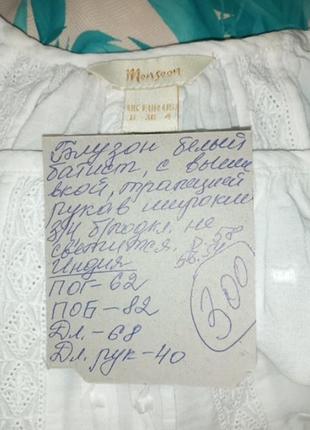 Monsoon
UK EUR US
8 36 4
Блузон белый
батист, с выши
вкой, трапецией
рукав широкий
3/4 б/подкл. не
светится. Р-58
Индия 56.58
ПОГ-62
ПОБ-82
Дл.-68
Дл. рук-40
300